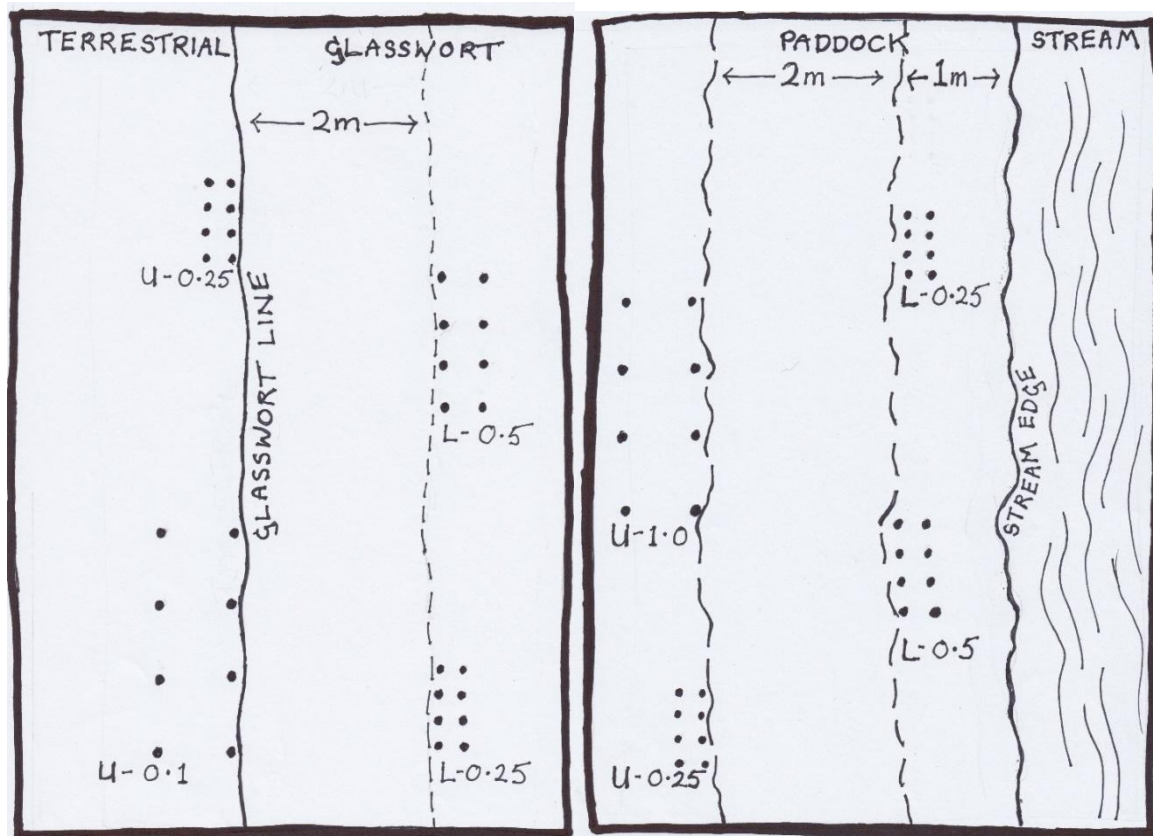 TERRESTRIAL
GLASSWORT
2m
U-0.25
GLASSWORT LINE
L-0.5
U-0.1
L-0.25
PADDOCK
STREAM
2m
1m
L-0.25
U-1.0
STREAM EDGE
L-0.5
U-0.25